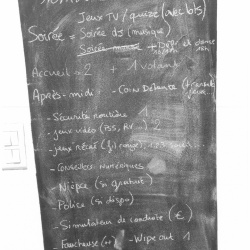 Jeux TV / quizz (avec lots)
Soirée = Soirée DJ (musique)
Soirée + Dépt et danse
18h
Accueil = 2 + 1 volant
Après-midi - Coin Détente
- Sécurité routière 1
- jeux vidéo (PS5, ) 2
- jeux récré (fil rouge),
- Conseillers numériques
- Nièpce (si gratuit)
- Police (si dispo)
- Simulateur de conduite (€)
- Faucheuse - Wipe out 1